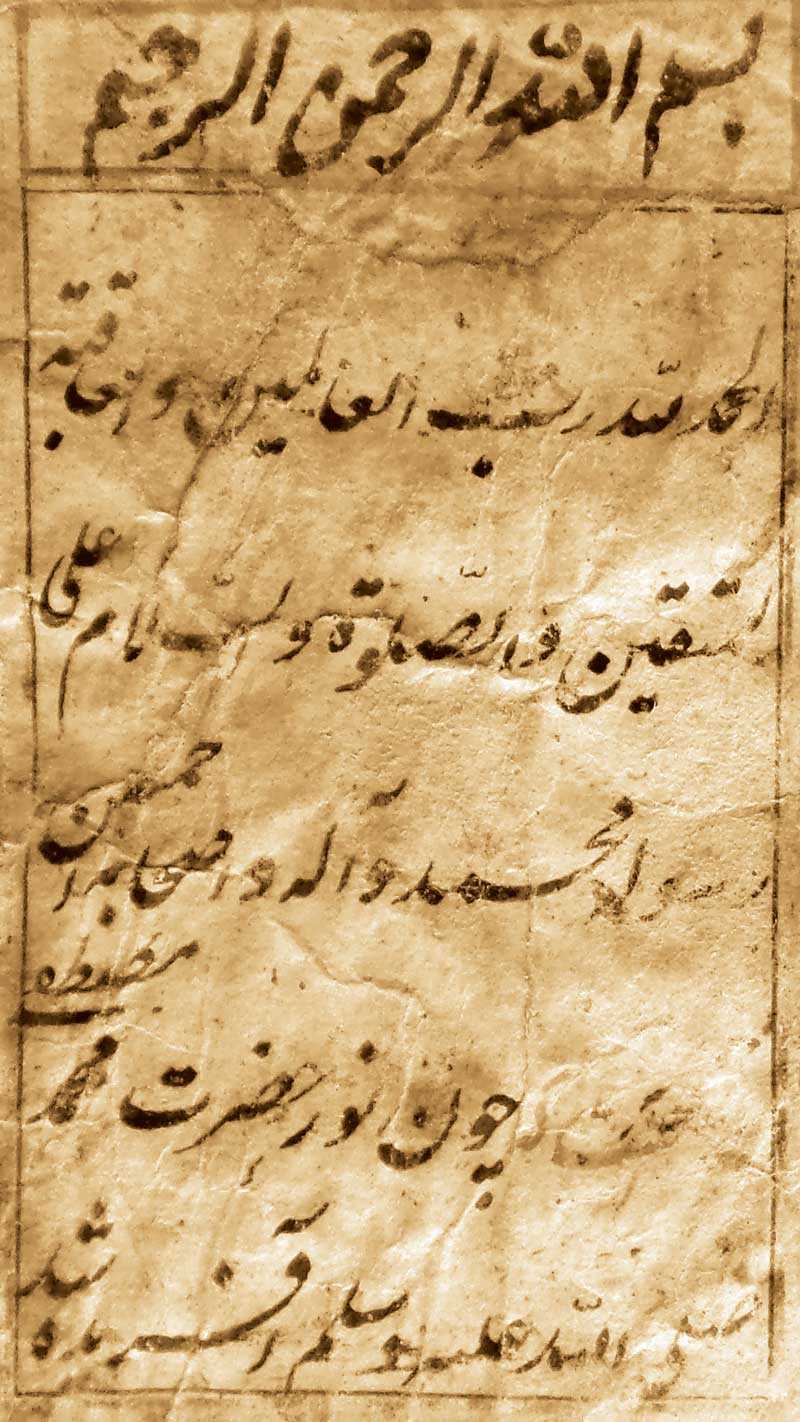 بسم الله الرحمن الرحیم
الحمد لله رب العالمین والعاقبة
للمتقین والصلوة والسلام علی
رسوله محمد وآله واصحابه اجمعین
چون نور حضرت محمد
صلی الله علیه وسلم آفریده شد